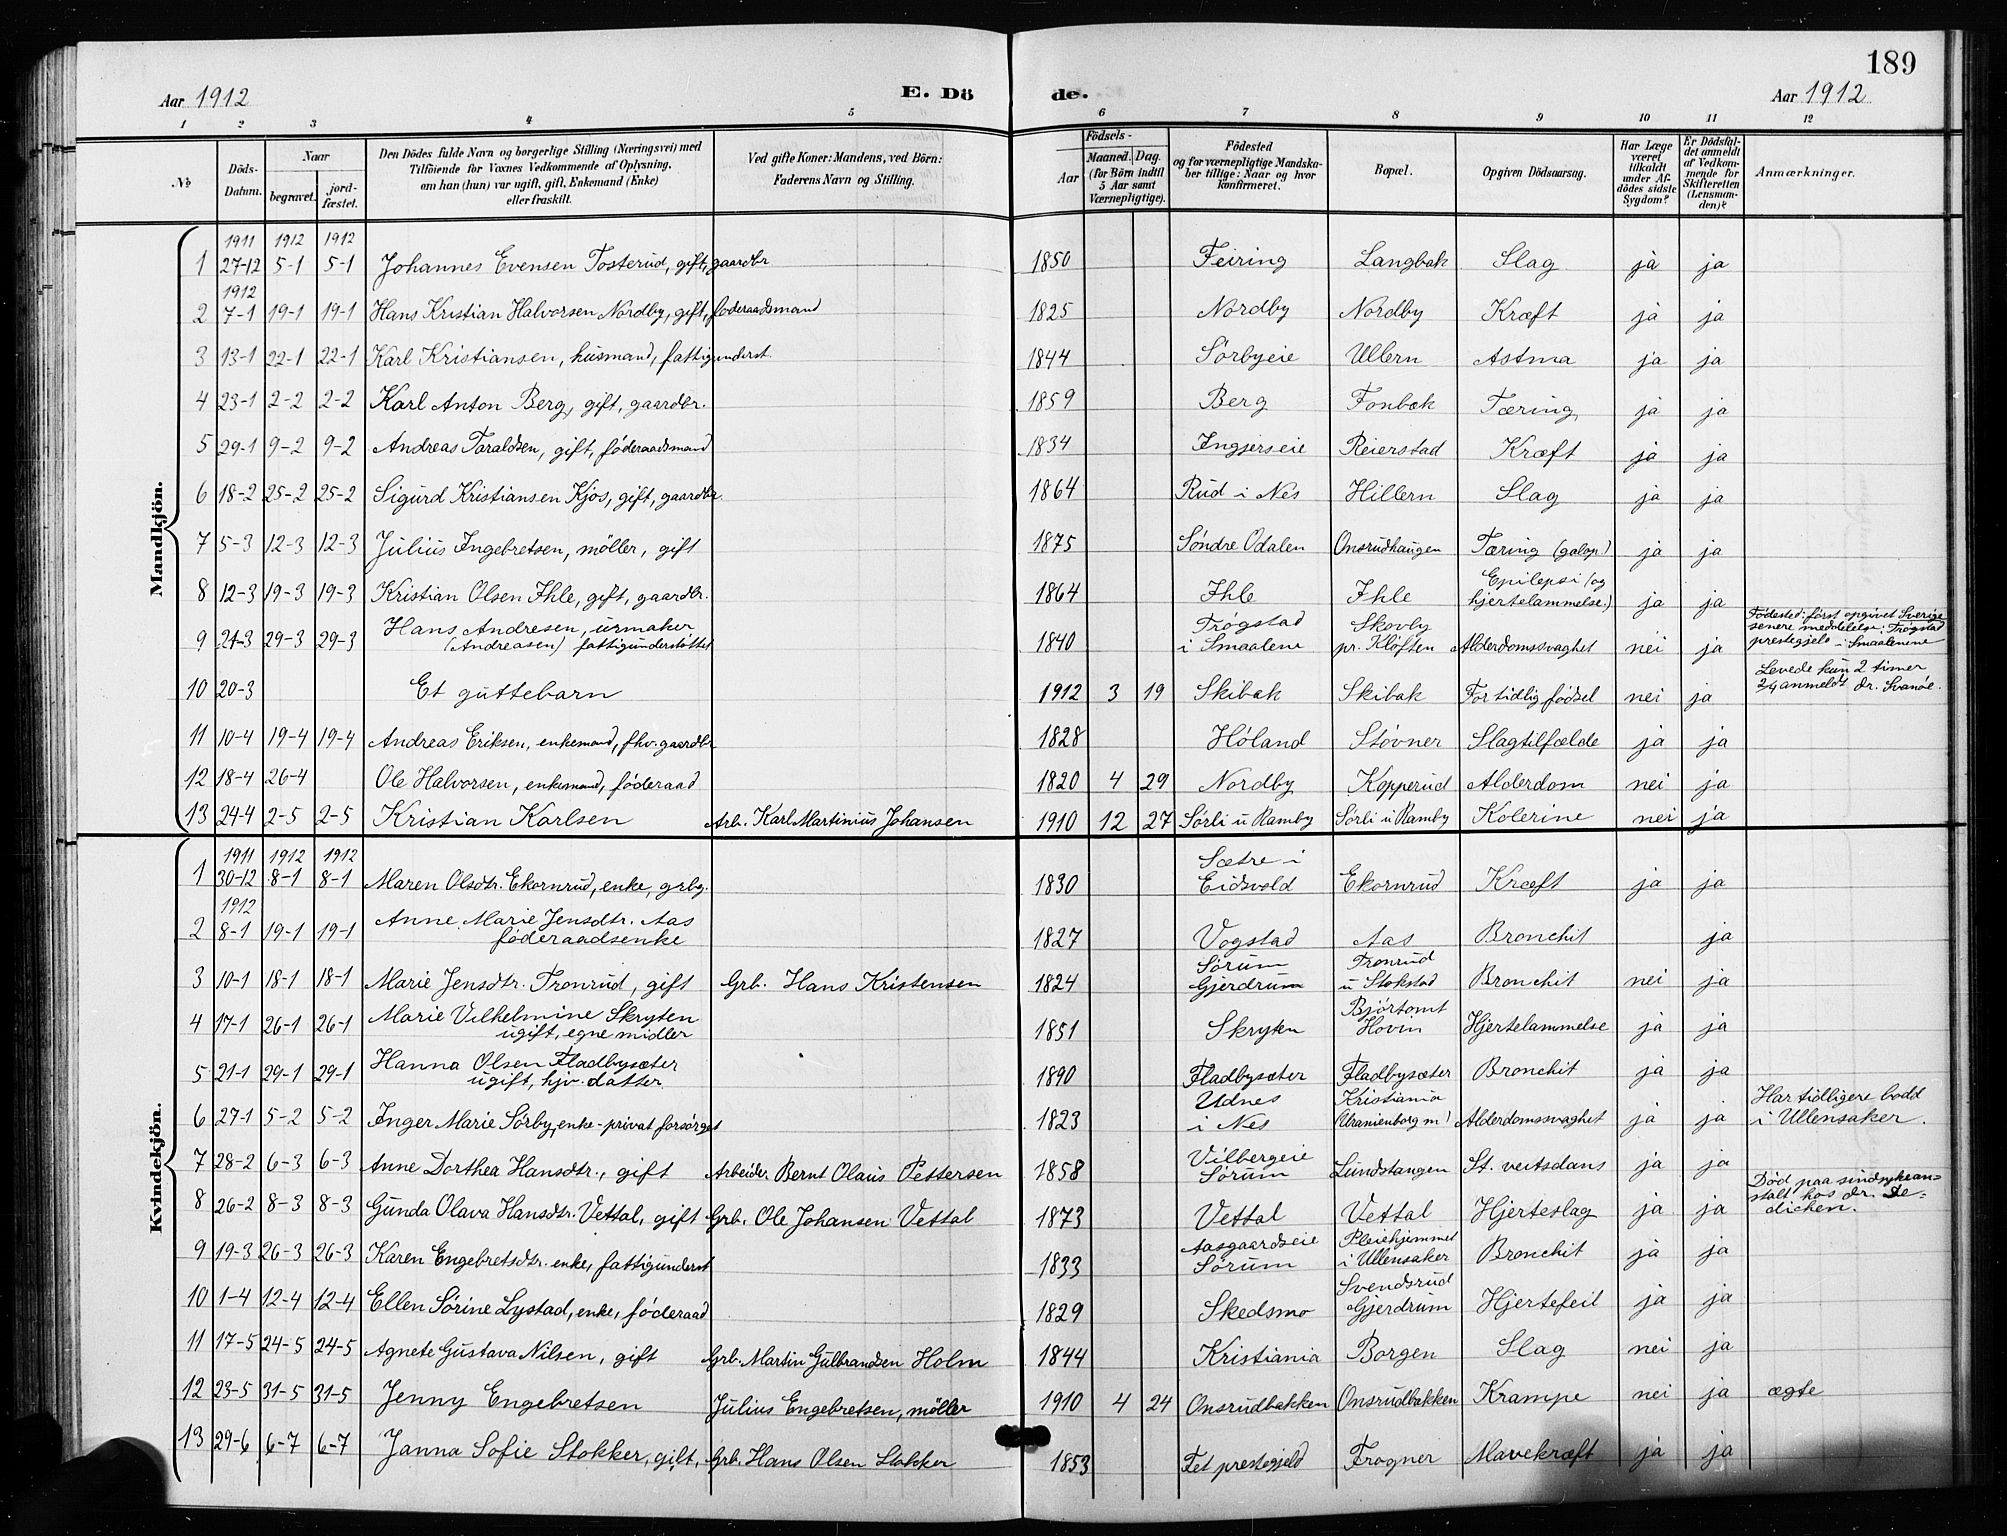 189
Aar 1912 E. Dö de. Aar 1912
1 2 3 4 5 6 7 8 9 10 11 12
No Döds-Datum. Naar begravet. jord-fæstet. Den Dödes fulde Navn og borgerlige Stilling (Næringsvei) med Tilföiende for Voxnes Vedkommende af Oplysning, om han (hun) var ugift, gift, Enkemand (Enke) eller fraskilt. Ved gifte Koner: Mandens, ved Börn: Faderens Navn og Stilling. Födsels- Aar Maaned. Dag. (for Börn indtil 5 Aar samt Værnepligtige). Födested og for værnepligtige Mandska-ber tillige: Naar og hvor konfirmeret. Bopæl. Opgiven Dödsaarsag. Har Læge været tilkaldt under Af-dödes sidste Sygdom? Er Dödsfal-det anmeldt af Vedkom-mende for Skifteretten (Lensman-den)? Anmærkninger.
Mandkjön.
1911 1912 1912
1 27-12 5-1 5-1 Johannes Evensen Tosterud, gift, gaardbr 1850 Feiring Langbak Slag ja ja
1912
2 7-1 19-1 19-1 Hans Kristian Halvorsen Nordby, gift, foderaadsmand 1825 Nordby Nordby Kræft ja ja
3 13-1 22-1 22-1 Karl Kristiansen, husmand, fattigunderst. 1844 Sörbyeie Ullern Astma ja ja
4 23-1 2-2 2-2 Karl Anton Berg, gift, gaardbr. 1859 Berg Fonbæk Tæring ja ja
5 29-1 9-2 9-2 Andreas Taraldsen, gift, føderaadsmand 1834 Ingjerseie Reierstad Kræft ja ja
6 18-2 25-2 25-2 Sigurd Kristiansen Kjos, gift, gaardbr. 1864 Rud i Nes Hillern Slag ja ja
7 5-3 12-3 12-3 Julius Ingebretsen, möller, gift 1875 Søndre Odalen Onsrudhaugen Tæring (galop.) ja ja
8 12-3 19-3 19-3 Kristian Olsen Ihle, gift, gaardbr. 1864 Ihle Ihle Epilepsi (og hjertelammelse.) ja ja
9 21-3 29-3 29-3 Hans Andresen, urmaker (Andreasen) fattigunderstöttet 1840 Trøgstad i Smaalene Skovby pr. Kløften Alderdomssvaghet nei ja Födested: först opgivet Sverige senere meddelelse: Trøgstad prestegjeld i Smaalenene
10 20-3 Et guttebarn 1912 3 19 Skibak Skibak For tidlig fødsel nei ja Levede kun 2 timer 2/4 anmeldt dr. Svanøe.
11 10-4 19-4 19-4 Andreas Eriksen, enkemand, fhv. gaardbr 1828 Høland Støvner Slagtilfælde ja ja
12 18-4 26-4 Ole Halvorsen, enkemand, føderaad 1820 4 29 Nordby Kopperud Alderdom nei ja
13 24-4 2-5 2-5 Kristian Karlsen Arb. Karl Martinius Johansen 1910 12 27 Sørli u Ramby Sørli u Ramby Kolerine nei ja
Kvindekjön.
1911 1912 1912
1 30-12 8-1 8-1 Maren Olsdtr. Ekornrud, enke, grbr. 1830 Sætre i Eidsvold Ekornrud Kræft ja ja
1912
2 8-1 19-1 19-1 Anne Marie Jensdtr. Aas føderaadsenke 1827 Vogstad Aas Bronchit ja
3 10-1 18-1 18-1 Marie Jensdtr. Tronrud, gift Grb. Hans Kristensen 1824 Sørum Gjerdrum Tronrud u Stokstad Bronchit nei ja
4 17-1 26-1 26-1 Marie Vilhelmine Skryten ugift, egne midler 1851 Skryten Bjørtomt Hovin Hjertelammelse ja ja
5 21-1 29-1 29-1 Hanna Olsen Fladbysæter ugift, hjv. datter 1890 Fladbysæter Fladbysæter Bronchit ja ja
6 27-1 5-2 5-2 Inger Marie Sörby, enke - privat forsørget 1823 Udnes i Nes Kristiania (Uranienborg m) Alderdomssvaghet ja ja Har tidligere bodd i Ullensaker.
7 28-2 6-3 6-3 Anne Dorthea Hansdtr., gift Arbeider Bernt Olaus Pettersen 1858 Vilbergeie Sørum Lundstangen St. veitsdans ja ja
8 26-2 8-3 8-3 Gunda Olava Hansdtr. Vettal, gift Grb. Ole Johansen Vettal 1873 Vettal Vettal Hjerteslag ja ja Død paa sindsykean-stalt hos dr. De-dichen.
9 19-3 26-3 26-3 Karen Engebretsdtr. enke, fattigunderst 1833 Aasgaardseie Sørum Pleiehjemmet i Ullensaker Bronchit ja ja
10 1-4 12-4 12-4 Ellen Sörine Lystad, enke, føderaad 1829 Skedsmo Svendsrud Gjerdrum Hjertefeil ja ja
11 17-5 24-5 24-5 Agnete Gustava Nilsen, gift Grb. Martin Gulbrandsen Holm 1844 Kristiania Borgen Slag nei ja
12 23-5 31-5 31-5 Jenny Engebretsen Julius Engebretsen, møller 1910 4 24 Onsrudbakken Onsrudbakken Krampe nei ja ægte
13 29-6 6-7 6-7 Janna Sofie Stokker, gift, Grb. Hans Olsen Stokker 1853 Fet prestegjeld Frogner Mavekræft ja ja